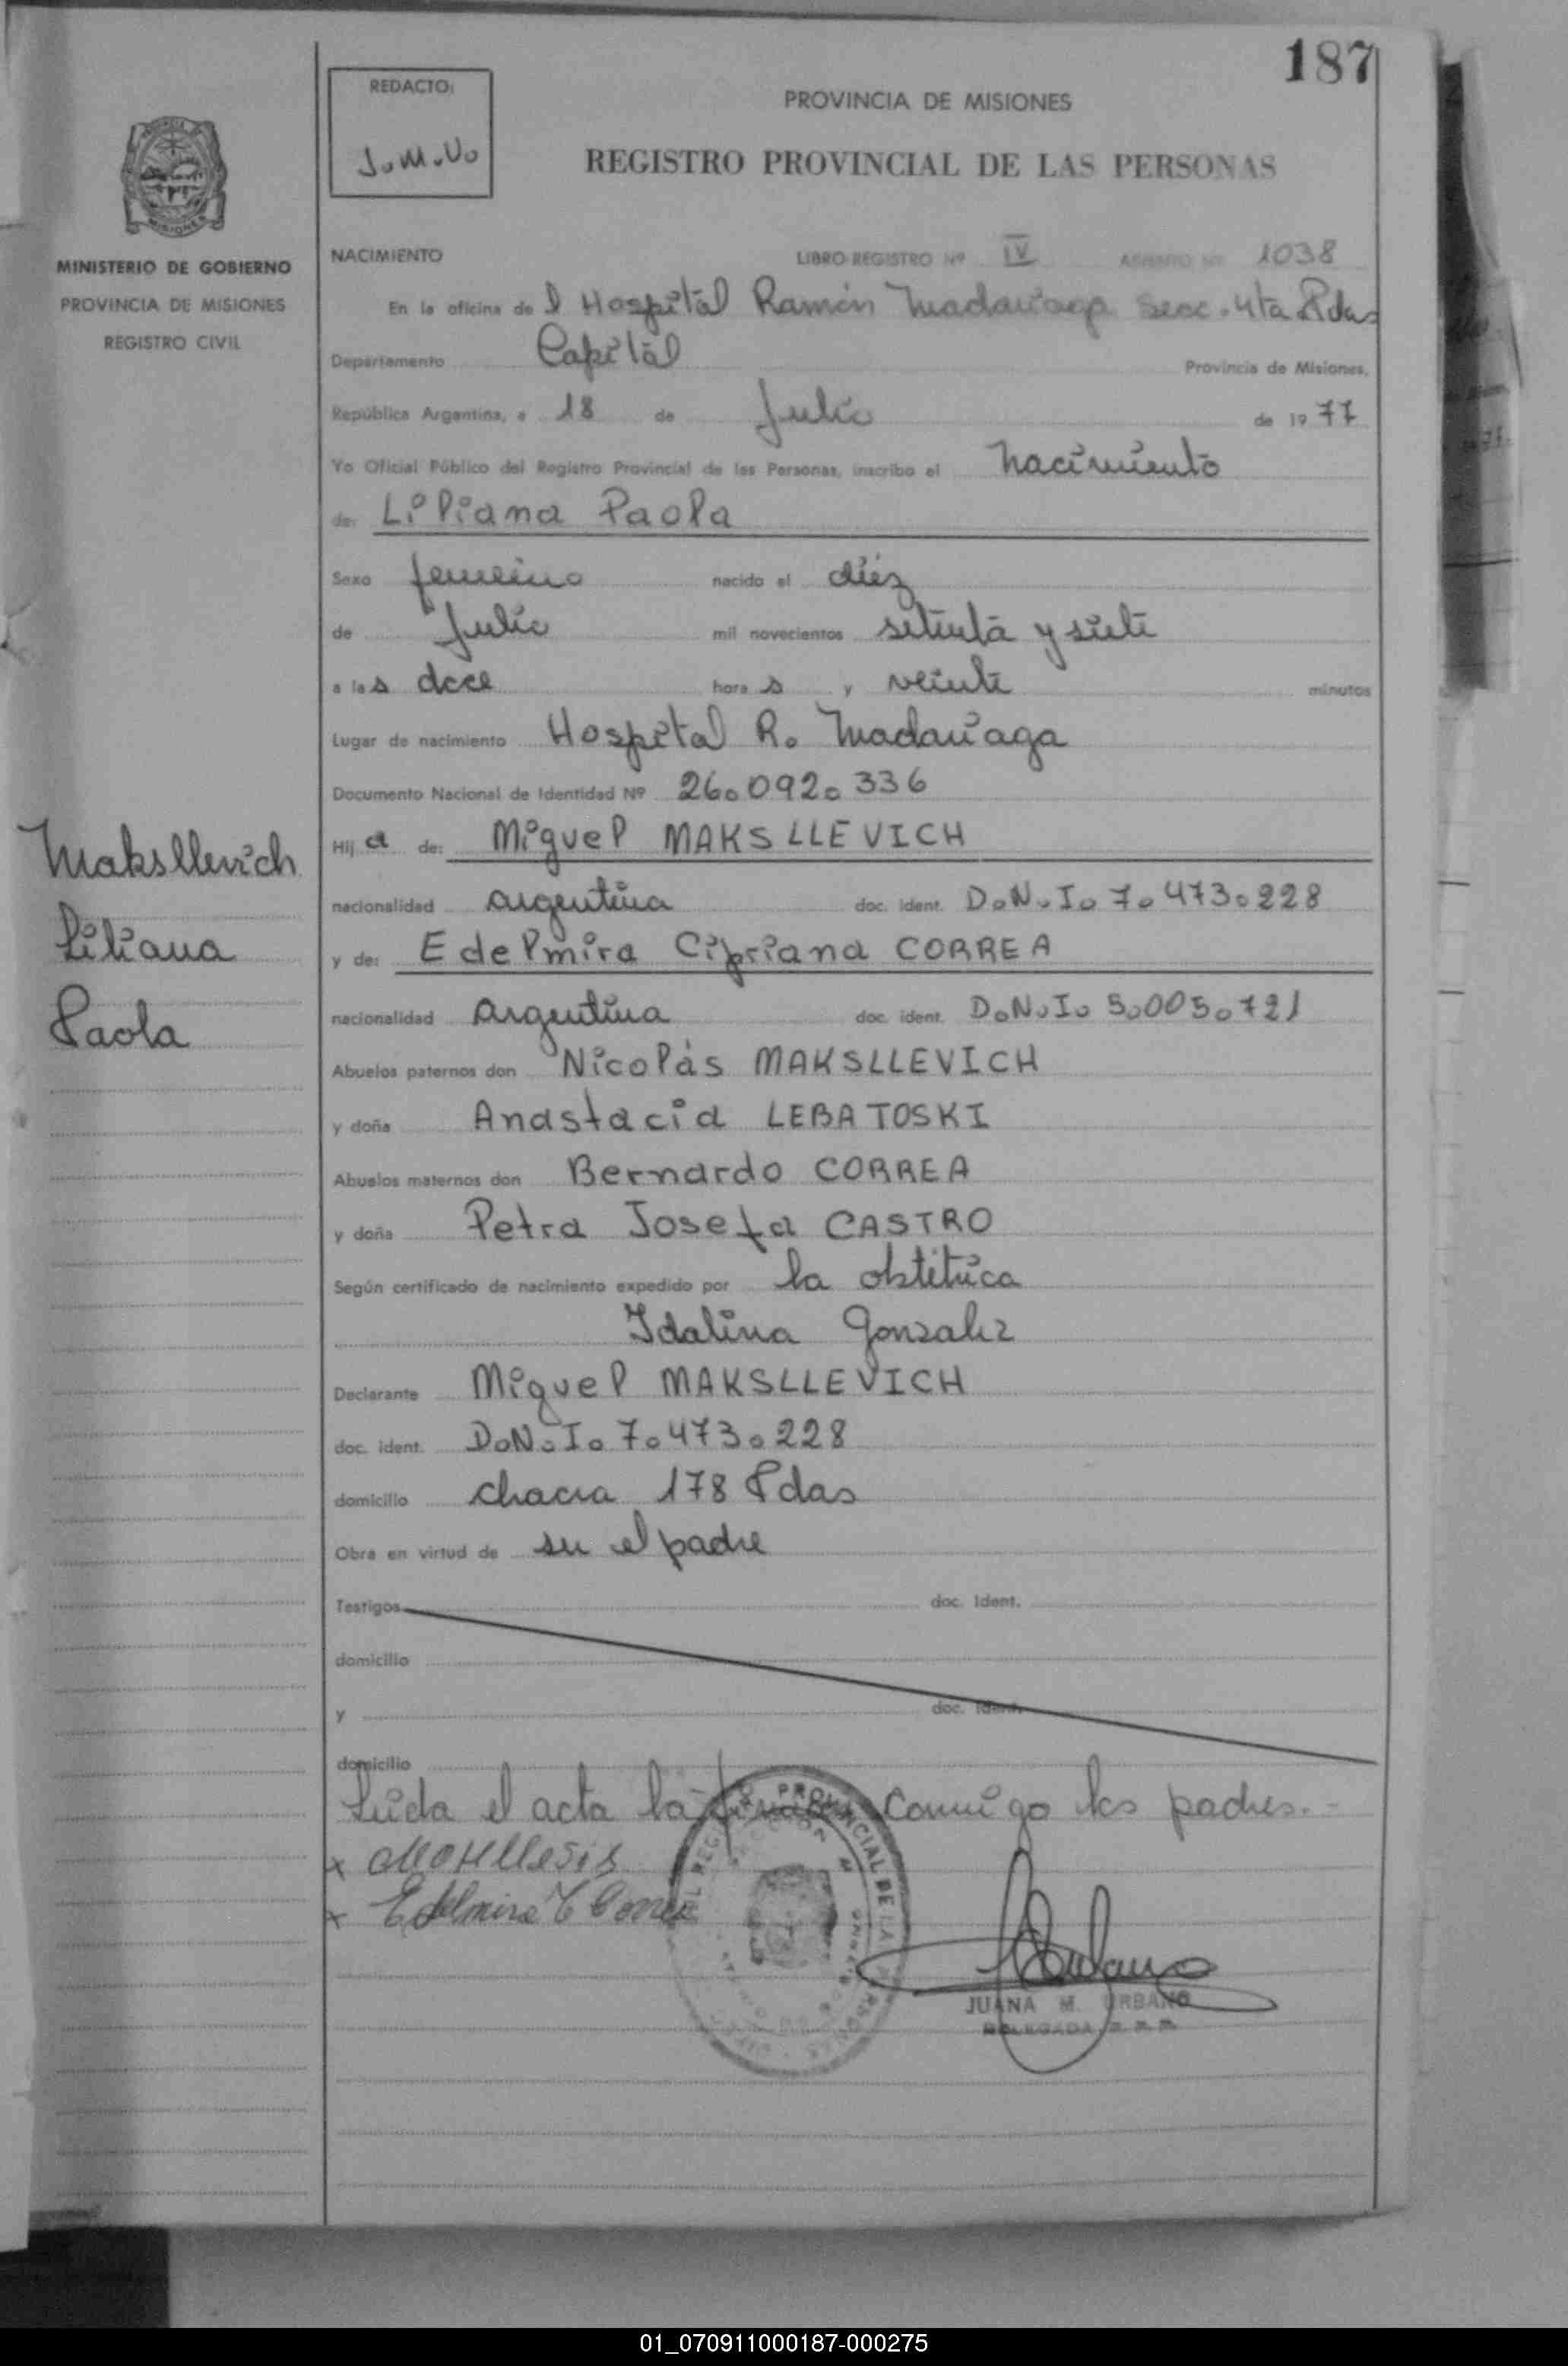 187
REDACTO:
J.M.U.
PROVINCIA DE MISIONES
REGISTRO PROVINCIAL DE LAS PERSONAS
MINISTERIO DE GOBIERNO
PROVINCIA DE MISIONES
REGISTRO CIVIL
NACIMIENTO LIBRO-REGISTRO Nº IV ASIENTO Nº 1038
En la oficina del Hospital Ramón Madariaga Secc. 4ta Pdas
Departamento Capital Provincia de Misiones,
República Argentina, a 18 de Julio de 1977
Yo Oficial Público del Registro Provincial de las Personas, inscribo el nacimiento
de: Liliana Paola
Sexo femenino nacido el diéz
de Julio mil novecientos setenta y siete
a las doce horas y veinte minutos
Lugar de nacimiento Hospital R. Madariaga
Documento Nacional de Identidad Nº 26.092.336
Hija de: Miguel MAKSLLEVICH
nacionalidad argentina doc. ident. D.N.I. 7.473.228
y de: Edelmira Cipriana CORREA
nacionalidad argentina doc. ident. D.N.I. 5.005.721
Abuelos paternos don Nicolás MAKSLLEVICH
y doña Anastacia LEBATOSKI
Abuelos maternos don Bernardo CORREA
y doña Petra Josefa CASTRO
Según certificado de nacimiento expedido por la obstétrica
Idalina Gonzalez
Declarante Miguel MAKSLLEVICH
doc. ident. D.N.I. 7.473.228
domicilio chacra 178 Pdas
Obra en virtud de ser el padre
Testigos doc. Ident.
domicilio
y doc. Ident.
domicilio
Leida el acta la firman conmigo los padres.-
x
x Edelmira C Correa
JUANA M. URBANO
DELEGADA R. P. P.
Maksllevich
Liliana
Paola
01_070911000187-000275